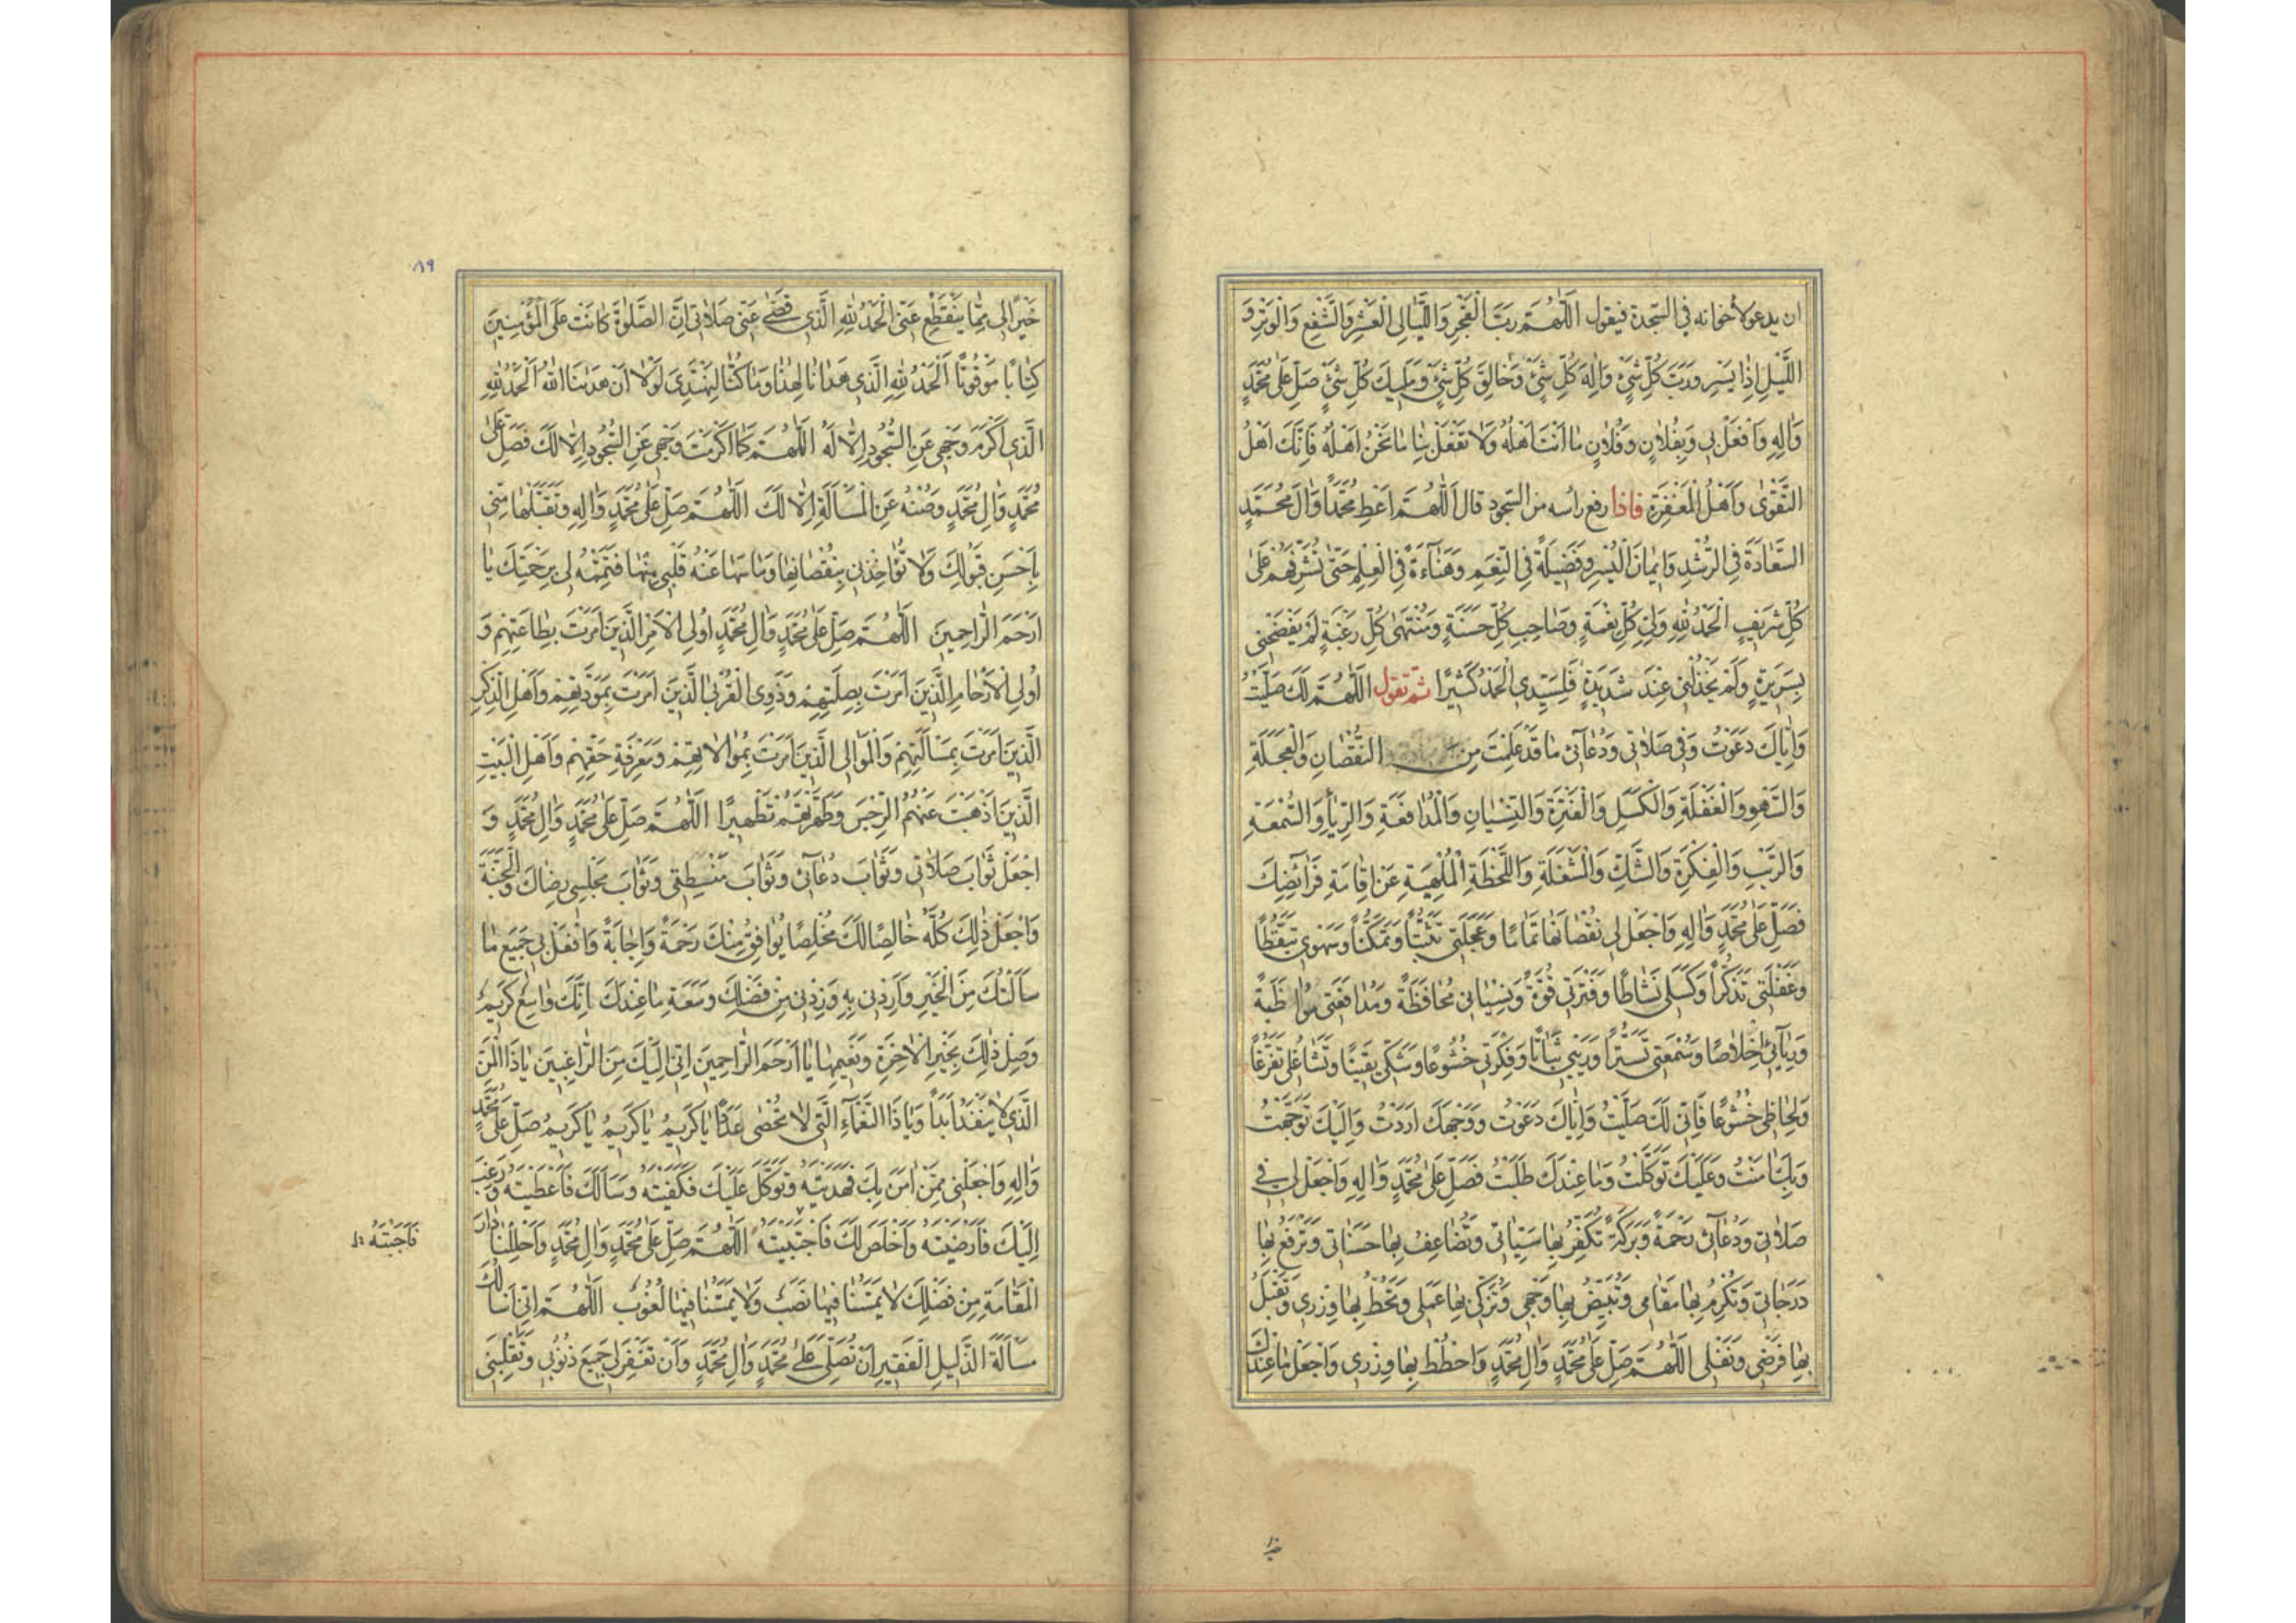 ان يدعو لأخوانه في السّجدة فيقول اَللّٰهُمَّ رَبَّ الْفَجْرِ وَاللَّيَالِي الْعَشْرِ وَالشَّفْعِ وَالْوَتْرِ وَ
اللَّيْلِ اِذَا يَسْرِ وَرَبَّ كُلِّ شَيْءٍ وَاِلٰهَ كُلِّ شَيْءٍ وَخَالِقَ كُلِّ شَيْءٍ وَمَلِيكَ كُلِّ شَيْءٍ صَلِّ عَلٰى مُحَمَّدٍ
وَاٰلِهِ وَافْعَلْ بِي وَبِفُلَانٍ وَفُلَانٍ مَا اَنْتَ اَهْلُهُ وَلَا تَفْعَلْ بِنَا مَا نَحْنُ اَهْلُهُ فَاِنَّكَ اَهْلُ
التَّقْوٰى وَاَهْلُ الْمَغْفِرَةِ فاذا رفع رأسه من السّجود قال اَللّٰهُمَّ اَعْطِ مُحَمَّدًا وَاٰلَ مُحَمَّدٍ
السَّعَادَةَ فِي الرُّشْدِ وَاِيمَانَ الْيُسْرِ وَفَضِيلَةً فِي النِّعَمِ وَهَنَاءَةً فِي الْعِلْمِ حَتّٰى تُشَرِّفَهُمْ عَلٰى
كُلِّ شَرِيفٍ اَلْحَمْدُ لِلّٰهِ وَلِيِّ كُلِّ نِعْمَةٍ وَصَاحِبِ كُلِّ حَسَنَةٍ وَمُنْتَهٰى كُلِّ رَغْبَةٍ لَمْ يَفْضَحْنِي
بِسَرِيرَةٍ وَلَمْ يَخْذُلْنِي عِنْدَ شَدِيدَةٍ فَلِسَيِّدِي الْحَمْدُ كَثِيرًا ثمّ تقول اَللّٰهُمَّ لَكَ صَلَّيْتُ
وَاِيَّاكَ دَعَوْتُ وَفِي صَلَاتِي وَدُعَائِي مَا قَدْ عَلِمْتَ مِنَ النُّقْصَانِ وَالْعَجَلَةِ
وَالسَّهْوِ وَالْغَفْلَةِ وَالْكَسَلِ وَالْفَتْرَةِ وَالنِّسْيَانِ وَالْمُدَافَعَةِ وَالرِّيَاءِ وَالسُّمْعَةِ
وَالرَّيْبِ وَالْفِكْرَةِ وَالشَّكِّ وَالْمَشْغَلَةِ وَاللَّحْظَةِ الْمُلْهِيَةِ عَنْ اِقَامَةِ فَرَائِضِكَ
فَصَلِّ عَلٰى مُحَمَّدٍ وَاٰلِهِ وَاجْعَلْ لِي نُقْصَانَهَا تَمَامًا وَعَجَلَتِي تَثَبُّتًا وَتَمَكُّنًا وَسَهْوِي تَيَقُّظًا
وَغَفْلَتِي تَذَكُّرًا وَكَسَلِي نَشَاطًا وَفَتْرَتِي قُوَّةً وَنِسْيَانِي مُحَافَظَةً وَمُدَافَعَتِي مُوَاظَبَةً
وَرِيَائِي اِخْلَاصًا وَسُمْعَتِي تَسَتُّرًا وَرَيْبِي ثَبَاتًا وَفِكْرَتِي خُشُوعًا وَشَكِّي يَقِينًا وَتَشَاغُلِي تَفَرُّغًا
وَلِحَاظِي خُشُوعًا فَاِنِّي لَكَ صَلَّيْتُ وَاِيَّاكَ دَعَوْتُ وَوَجْهَكَ اَرَدْتُ وَاِلَيْكَ تَوَجَّهْتُ
وَبِكَ اٰمَنْتُ وَعَلَيْكَ تَوَكَّلْتُ وَمَا عِنْدَكَ طَلَبْتُ فَصَلِّ عَلٰى مُحَمَّدٍ وَاٰلِهِ وَاجْعَلْ لِي فِي
صَلَاتِي وَدُعَائِي رَحْمَةً وَبَرَكَةً تُكَفِّرُ بِهَا سَيِّئَاتِي وَتُضَاعِفُ بِهَا حَسَنَاتِي وَتَرْفَعُ بِهَا
دَرَجَاتِي وَتُكْرِمُ بِهَا مَقَامِي وَتُبَيِّضُ بِهَا وَجْهِي وَتُزَكِّي بِهَا عَمَلِي وَتَحُطُّ بِهَا وِزْرِي وَتَقْبَلُ
بِهَا فَرْضِي وَنَفْلِي اَللّٰهُمَّ صَلِّ عَلٰى مُحَمَّدٍ وَاٰلِ مُحَمَّدٍ وَاحْطُطْ بِهَا وِزْرِي وَاجْعَلْ مَا عِنْدَكَ
٨٩
خَيْرًا لِي مِمَّا يَنْقَطِعُ عَنِّي اَلْحَمْدُ لِلّٰهِ الَّذِي قَضٰى عَنِّي صَلَاتِي اِنَّ الصَّلٰوةَ كَانَتْ عَلَى الْمُؤْمِنِينَ
كِتَابًا مَوْقُوتًا اَلْحَمْدُ لِلّٰهِ الَّذِي هَدَانَا لِهٰذَا وَمَا كُنَّا لِنَهْتَدِيَ لَوْلَا اَنْ هَدٰينَا اللّٰهُ اَلْحَمْدُ لِلّٰهِ
الَّذِي اَكْرَمَ وَجْهِي عَنِ السُّجُودِ اِلَّا لَهُ اَللّٰهُمَّ كَمَا اَكْرَمْتَ وَجْهِي عَنِ السُّجُودِ اِلَّا لَكَ فَصَلِّ عَلٰى
مُحَمَّدٍ وَاٰلِ مُحَمَّدٍ وَصُنْهُ عَنِ الْمَسْأَلَةِ اِلَّا لَكَ اَللّٰهُمَّ صَلِّ عَلٰى مُحَمَّدٍ وَاٰلِهِ وَتَقَبَّلْهَا مِنِّي
بِاَحْسَنِ قَبُولِكَ وَلَا تُؤَاخِذْنِي بِنُقْصَانِهَا وَمَا سَهَا عَنْهُ قَلْبِي مِنْهَا فَتَمِّمْهُ لِي بِرَحْمَتِكَ يَا
اَرْحَمَ الرَّاحِمِينَ اَللّٰهُمَّ صَلِّ عَلٰى مُحَمَّدٍ وَاٰلِ مُحَمَّدٍ اُولِي الْاَمْرِ الَّذِينَ اَمَرْتَ بِطَاعَتِهِمْ وَ
اُولِي الْاَرْحَامِ الَّذِينَ اَمَرْتَ بِصِلَتِهِمْ وَذَوِي الْقُرْبٰى الَّذِينَ اَمَرْتَ بِمَوَدَّتِهِمْ وَاَهْلِ الذِّكْرِ
الَّذِينَ اَمَرْتَ بِمَسْأَلَتِهِمْ وَالْمَوَالِي الَّذِينَ اَمَرْتَ بِمُوَالَاتِهِمْ وَمَعْرِفَةِ حَقِّهِمْ وَاَهْلِ الْبَيْتِ
الَّذِينَ اَذْهَبْتَ عَنْهُمُ الرِّجْسَ وَطَهَّرْتَهُمْ تَطْهِيرًا اَللّٰهُمَّ صَلِّ عَلٰى مُحَمَّدٍ وَاٰلِ مُحَمَّدٍ وَ
اجْعَلْ ثَوَابَ صَلَاتِي وَثَوَابَ دُعَائِي وَثَوَابَ مَنْطِقِي وَثَوَابَ مَجْلِسِي رِضَاكَ وَالْجَنَّةَ
وَاجْعَلْ ذٰلِكَ كُلَّهُ خَالِصًا لَكَ مُخْلِصًا يُوَافِقُ مِنْكَ رَحْمَةً وَاِجَابَةً وَافْعَلْ بِي جَمِيعَ مَا
سَأَلْتُكَ مِنَ الْخَيْرِ وَاَرِدْنِي بِهِ وَزِدْنِي مِنْ فَضْلِكَ وَسَعَةِ مَا عِنْدَكَ اِنَّكَ وَاسِعٌ كَرِيمٌ
وَصِلْ ذٰلِكَ بِخَيْرِ الْاٰخِرَةِ وَنَعِيمِهَا يَا اَرْحَمَ الرَّاحِمِينَ اِنِّي اِلَيْكَ مِنَ الرَّاغِبِينَ يَا ذَا الْمَنِّ
الَّذِي لَا يَنْفَدُ اَبَدًا وَيَا ذَا النَّعْمَاءِ الَّتِي لَا تُحْصٰى عَدَدًا يَا كَرِيمُ يَا كَرِيمُ يَا كَرِيمُ صَلِّ عَلٰى مُحَمَّدٍ
وَاٰلِهِ وَاجْعَلْنِي مِمَّنْ اٰمَنَ بِكَ فَهَدَيْتَهُ وَتَوَكَّلَ عَلَيْكَ فَكَفَيْتَهُ وَسَأَلَكَ فَاَعْطَيْتَهُ وَرَغِبَ
اِلَيْكَ فَاَرْضَيْتَهُ وَاَخْلَصَ لَكَ فَاجْتَبَيْتَهُ اَللّٰهُمَّ صَلِّ عَلٰى مُحَمَّدٍ وَاٰلِ مُحَمَّدٍ وَاَحْلِلْنَا دَارَ
الْمُقَامَةِ مِنْ فَضْلِكَ لَا يَمَسُّنَا فِيهَا نَصَبٌ وَلَا يَمَسُّنَا فِيهَا لُغُوبٌ اَللّٰهُمَّ اِنِّي اَسْأَلُكَ
مَسْأَلَةَ الذَّلِيلِ الْفَقِيرِ اَنْ تُصَلِّيَ عَلٰى مُحَمَّدٍ وَاٰلِ مُحَمَّدٍ وَاَنْ تَغْفِرَ لِي جَمِيعَ ذُنُوبِي وَتَقْلِبَنِي